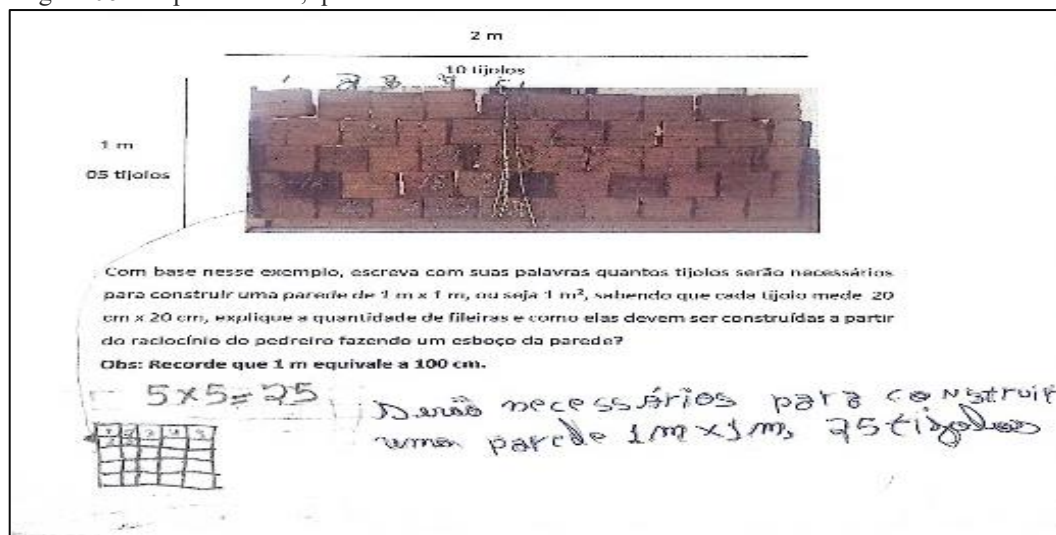 2 m
10 tijolos
1 2 3 4 5
1 m
05 tijolos
Com base nesse exemplo, escreva com suas palavras quantos tijolos serão necessários
para construir uma parede de 1 m x 1 m, ou seja 1 m², sabendo que cada tijolo mede 20
cm x 20 cm, explique a quantidade de fileiras e como elas devem ser construídas a partir
do raciocínio do pedreiro fazendo um esboço da parede?
Obs: Recorde que 1 m equivale a 100 cm.
5x5=25
1 2 3 4 5
Serão necessários para construir
uma parede 1m x 1m, 25 tijolos